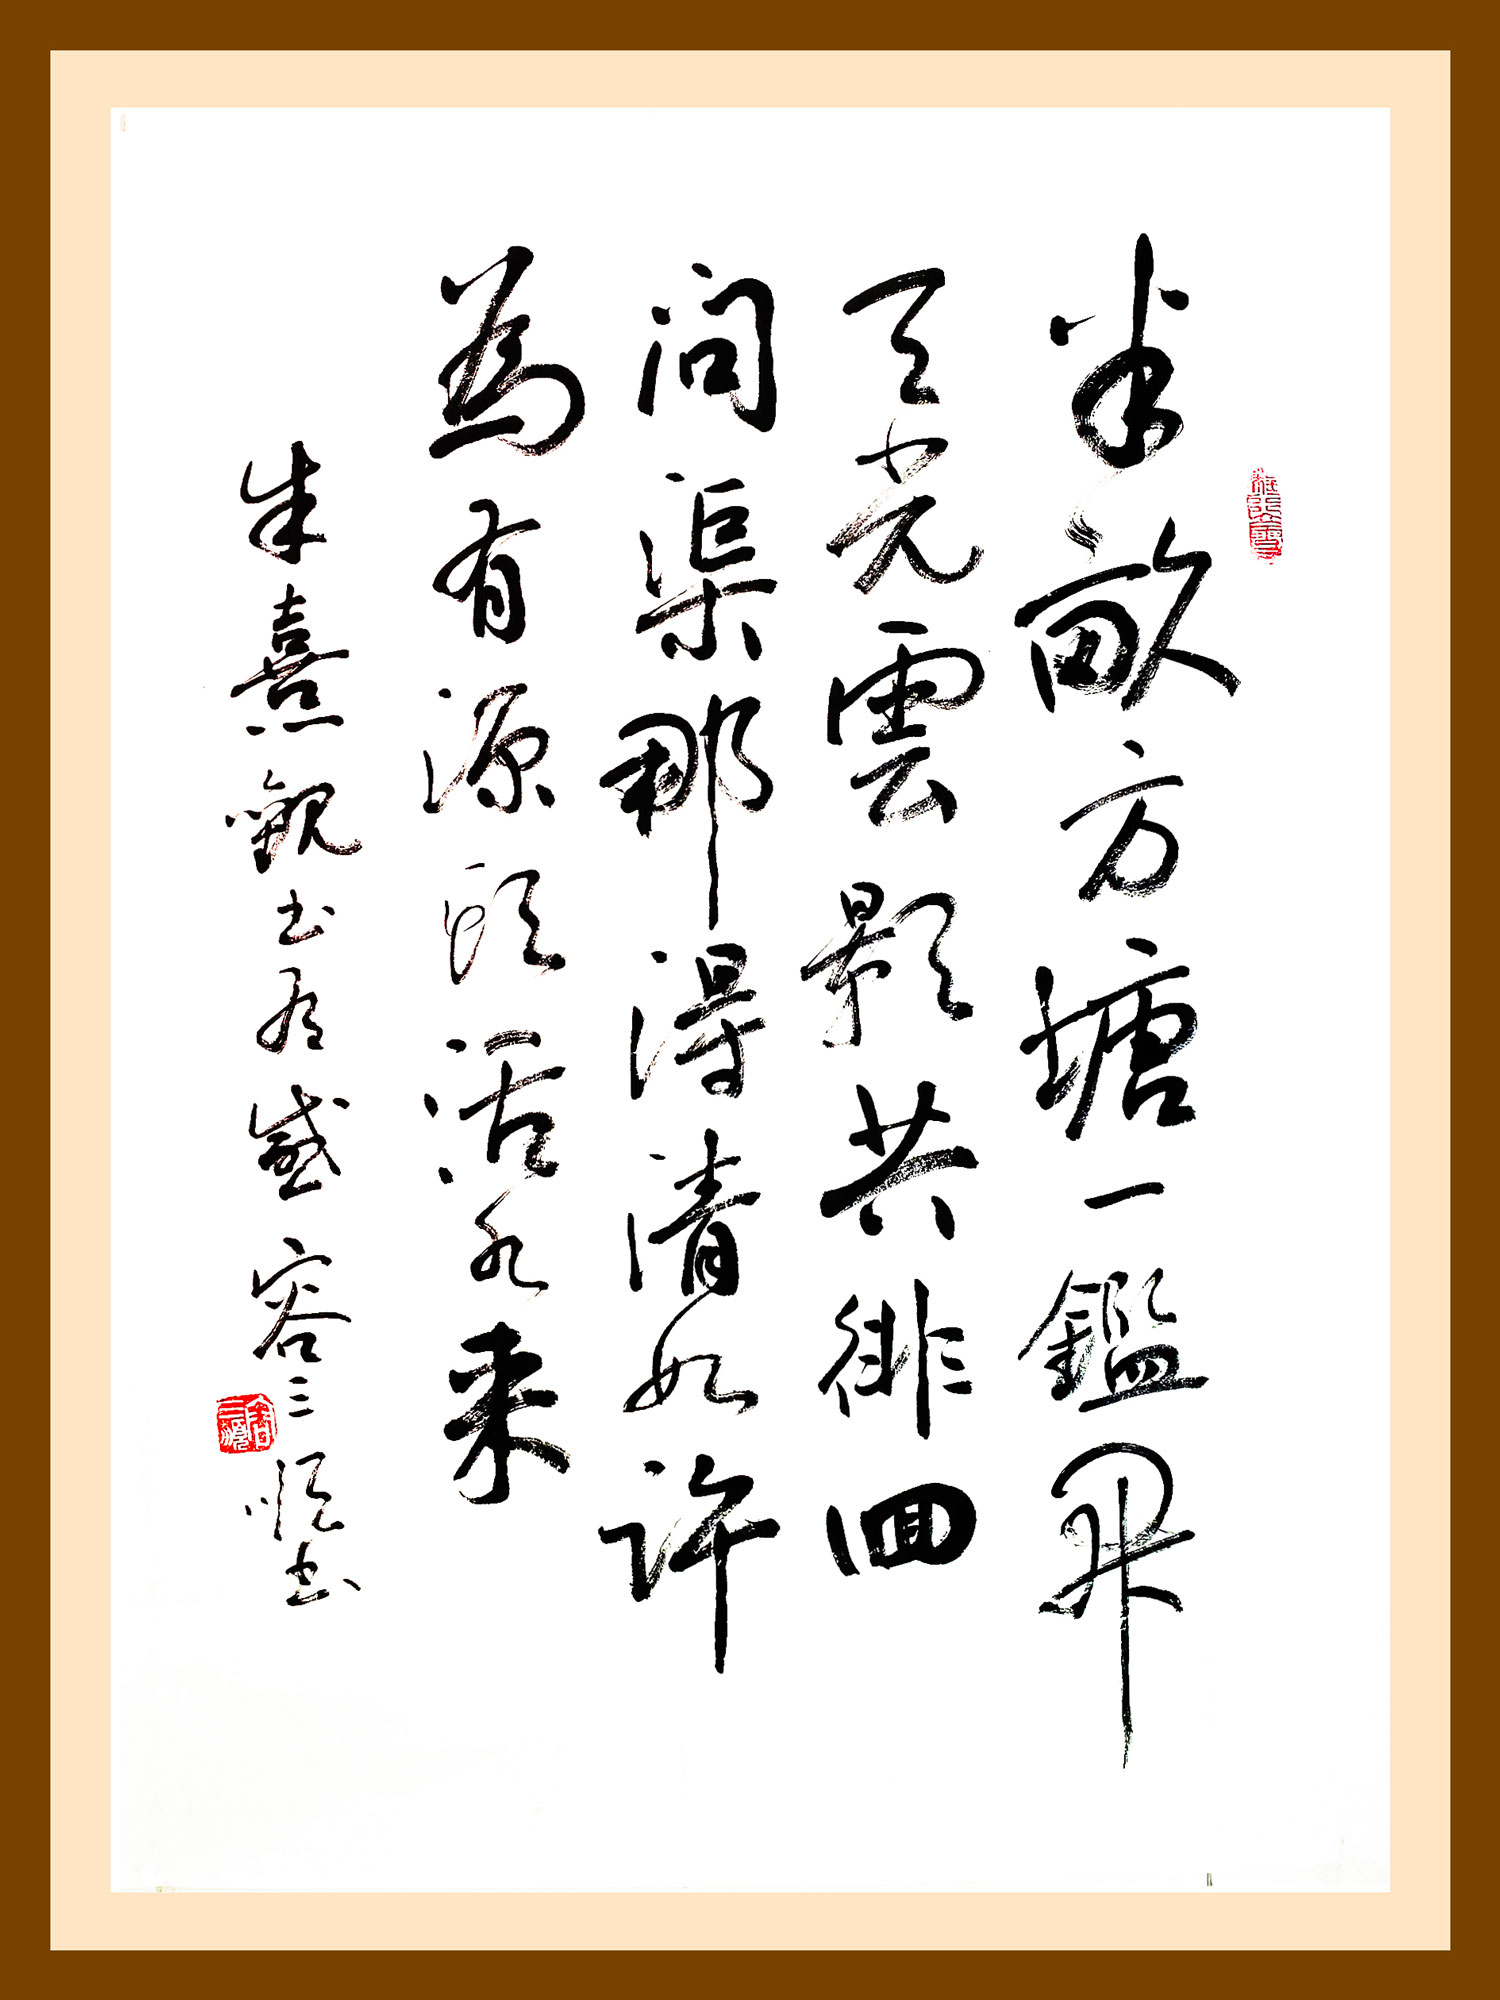 半畝方塘一鑑開
天光雲影共徘徊
問渠那得清如許
為有源頭活水来
朱熹觀书有感 容三順书